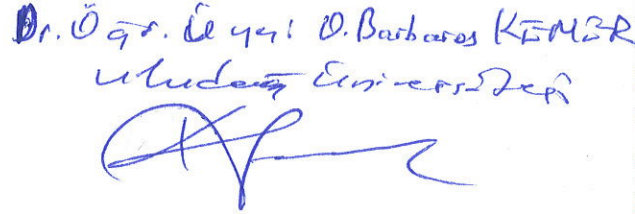 Dr. Öğr. Üyesi O. Barbaros KEMER
Uludağ Üniversitesi